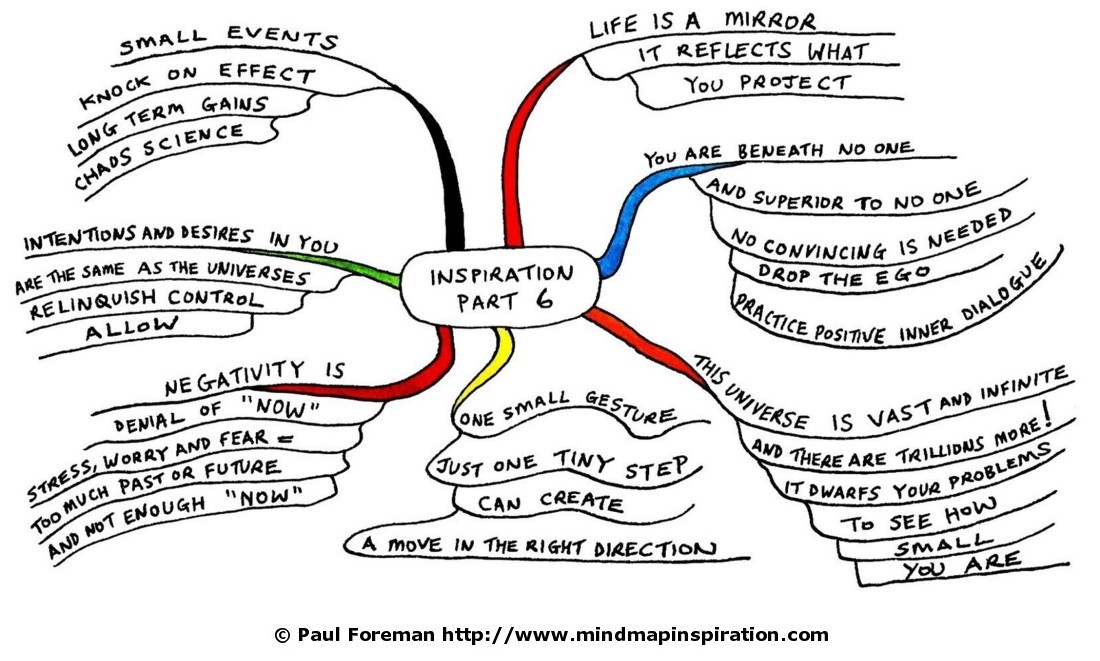 INSPIRATION
PART 6
LIFE IS A MIRROR
IT REFLECTS WHAT
YOU PROJECT
YOU ARE BENEATH NO ONE
AND SUPERIOR TO NO ONE
NO CONVINCING IS NEEDED
DROP THE EGO
PRACTICE POSITIVE INNER DIALOGUE
THIS UNIVERSE IS VAST AND INFINITE
AND THERE ARE TRILLIONS MORE!
IT DWARFS YOUR PROBLEMS
TO SEE HOW
SMALL
YOU ARE
ONE SMALL GESTURE
JUST ONE TINY STEP
CAN CREATE
A MOVE IN THE RIGHT DIRECTION
NEGATIVITY IS
DENIAL OF "NOW"
STRESS, WORRY AND FEAR =
TOO MUCH PAST OR FUTURE
AND NOT ENOUGH "NOW"
INTENTIONS AND DESIRES IN YOU
ARE THE SAME AS THE UNIVERSES
RELINQUISH CONTROL
ALLOW
SMALL EVENTS
KNOCK ON EFFECT
LONG TERM GAINS
CHAOS SCIENCE
© Paul Foreman http://www.mindmapinspiration.com